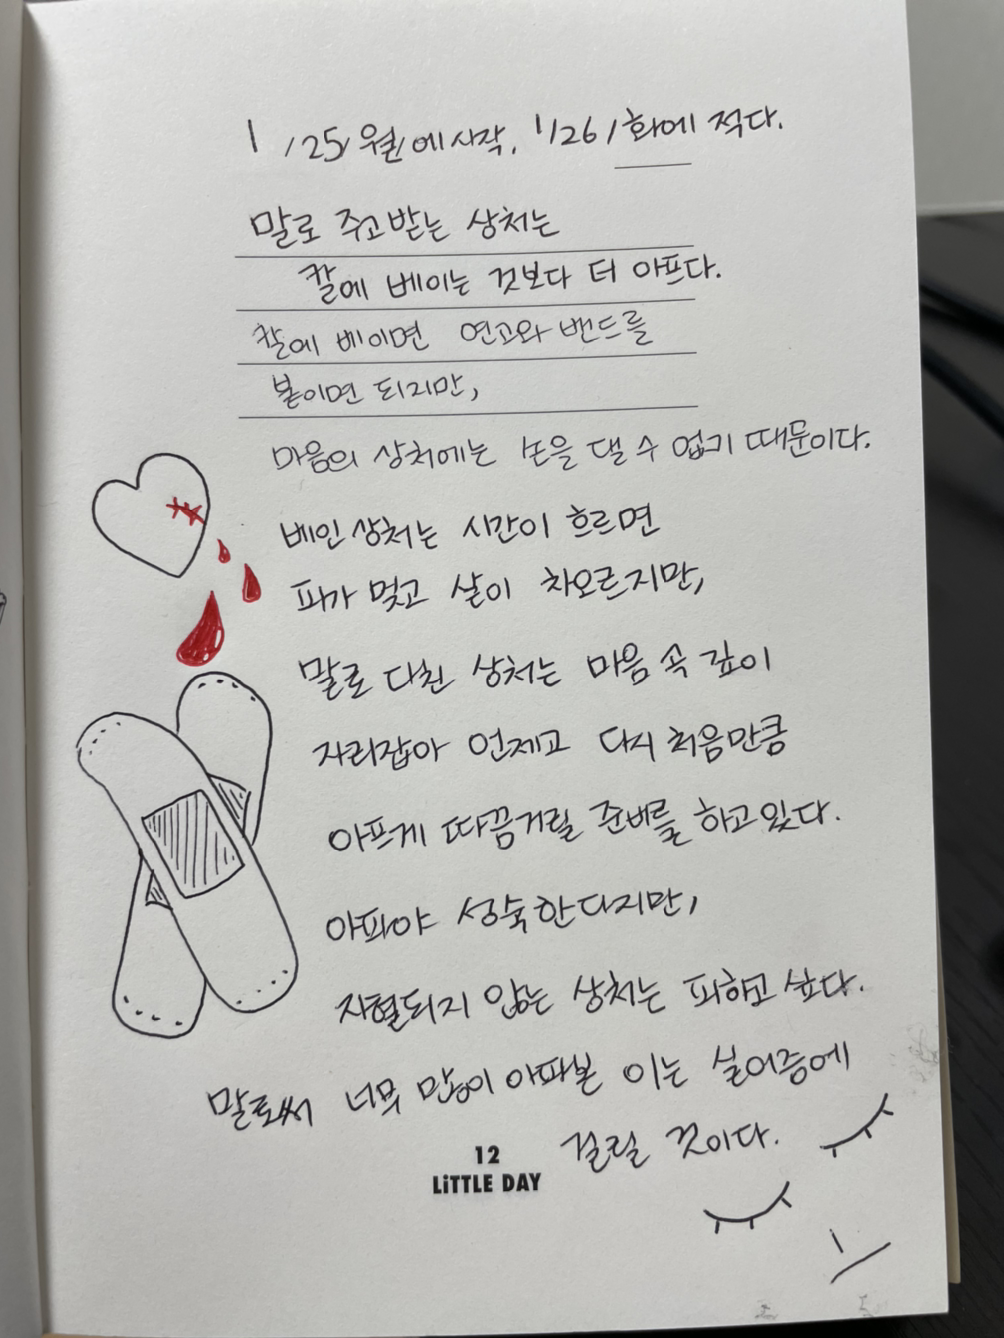 1/25/월에 시작, 1/26/화에 적다.
말로 주고받는 상처는
칼에 베이는 것보다 더 아프다.
칼에 베이면 연고와 밴드를
붙이면 되지만,
마음의 상처에는 손을 댈 수 없기 때문이다.
베인 상처는 시간이 흐르면
피가 멎고 살이 차오르지만,
말로 다친 상처는 마음 속 깊이
자리잡아 언제고 다시 처음만큼
아프게 따끔거릴 준비를 하고 있다.
아파야 성숙한다지만,
지혈되지 않는 상처는 피하고 싶다.
말로써 너무 많이 아파본 이는 실어증에
걸릴 것이다.
12
LiTTLE DAY